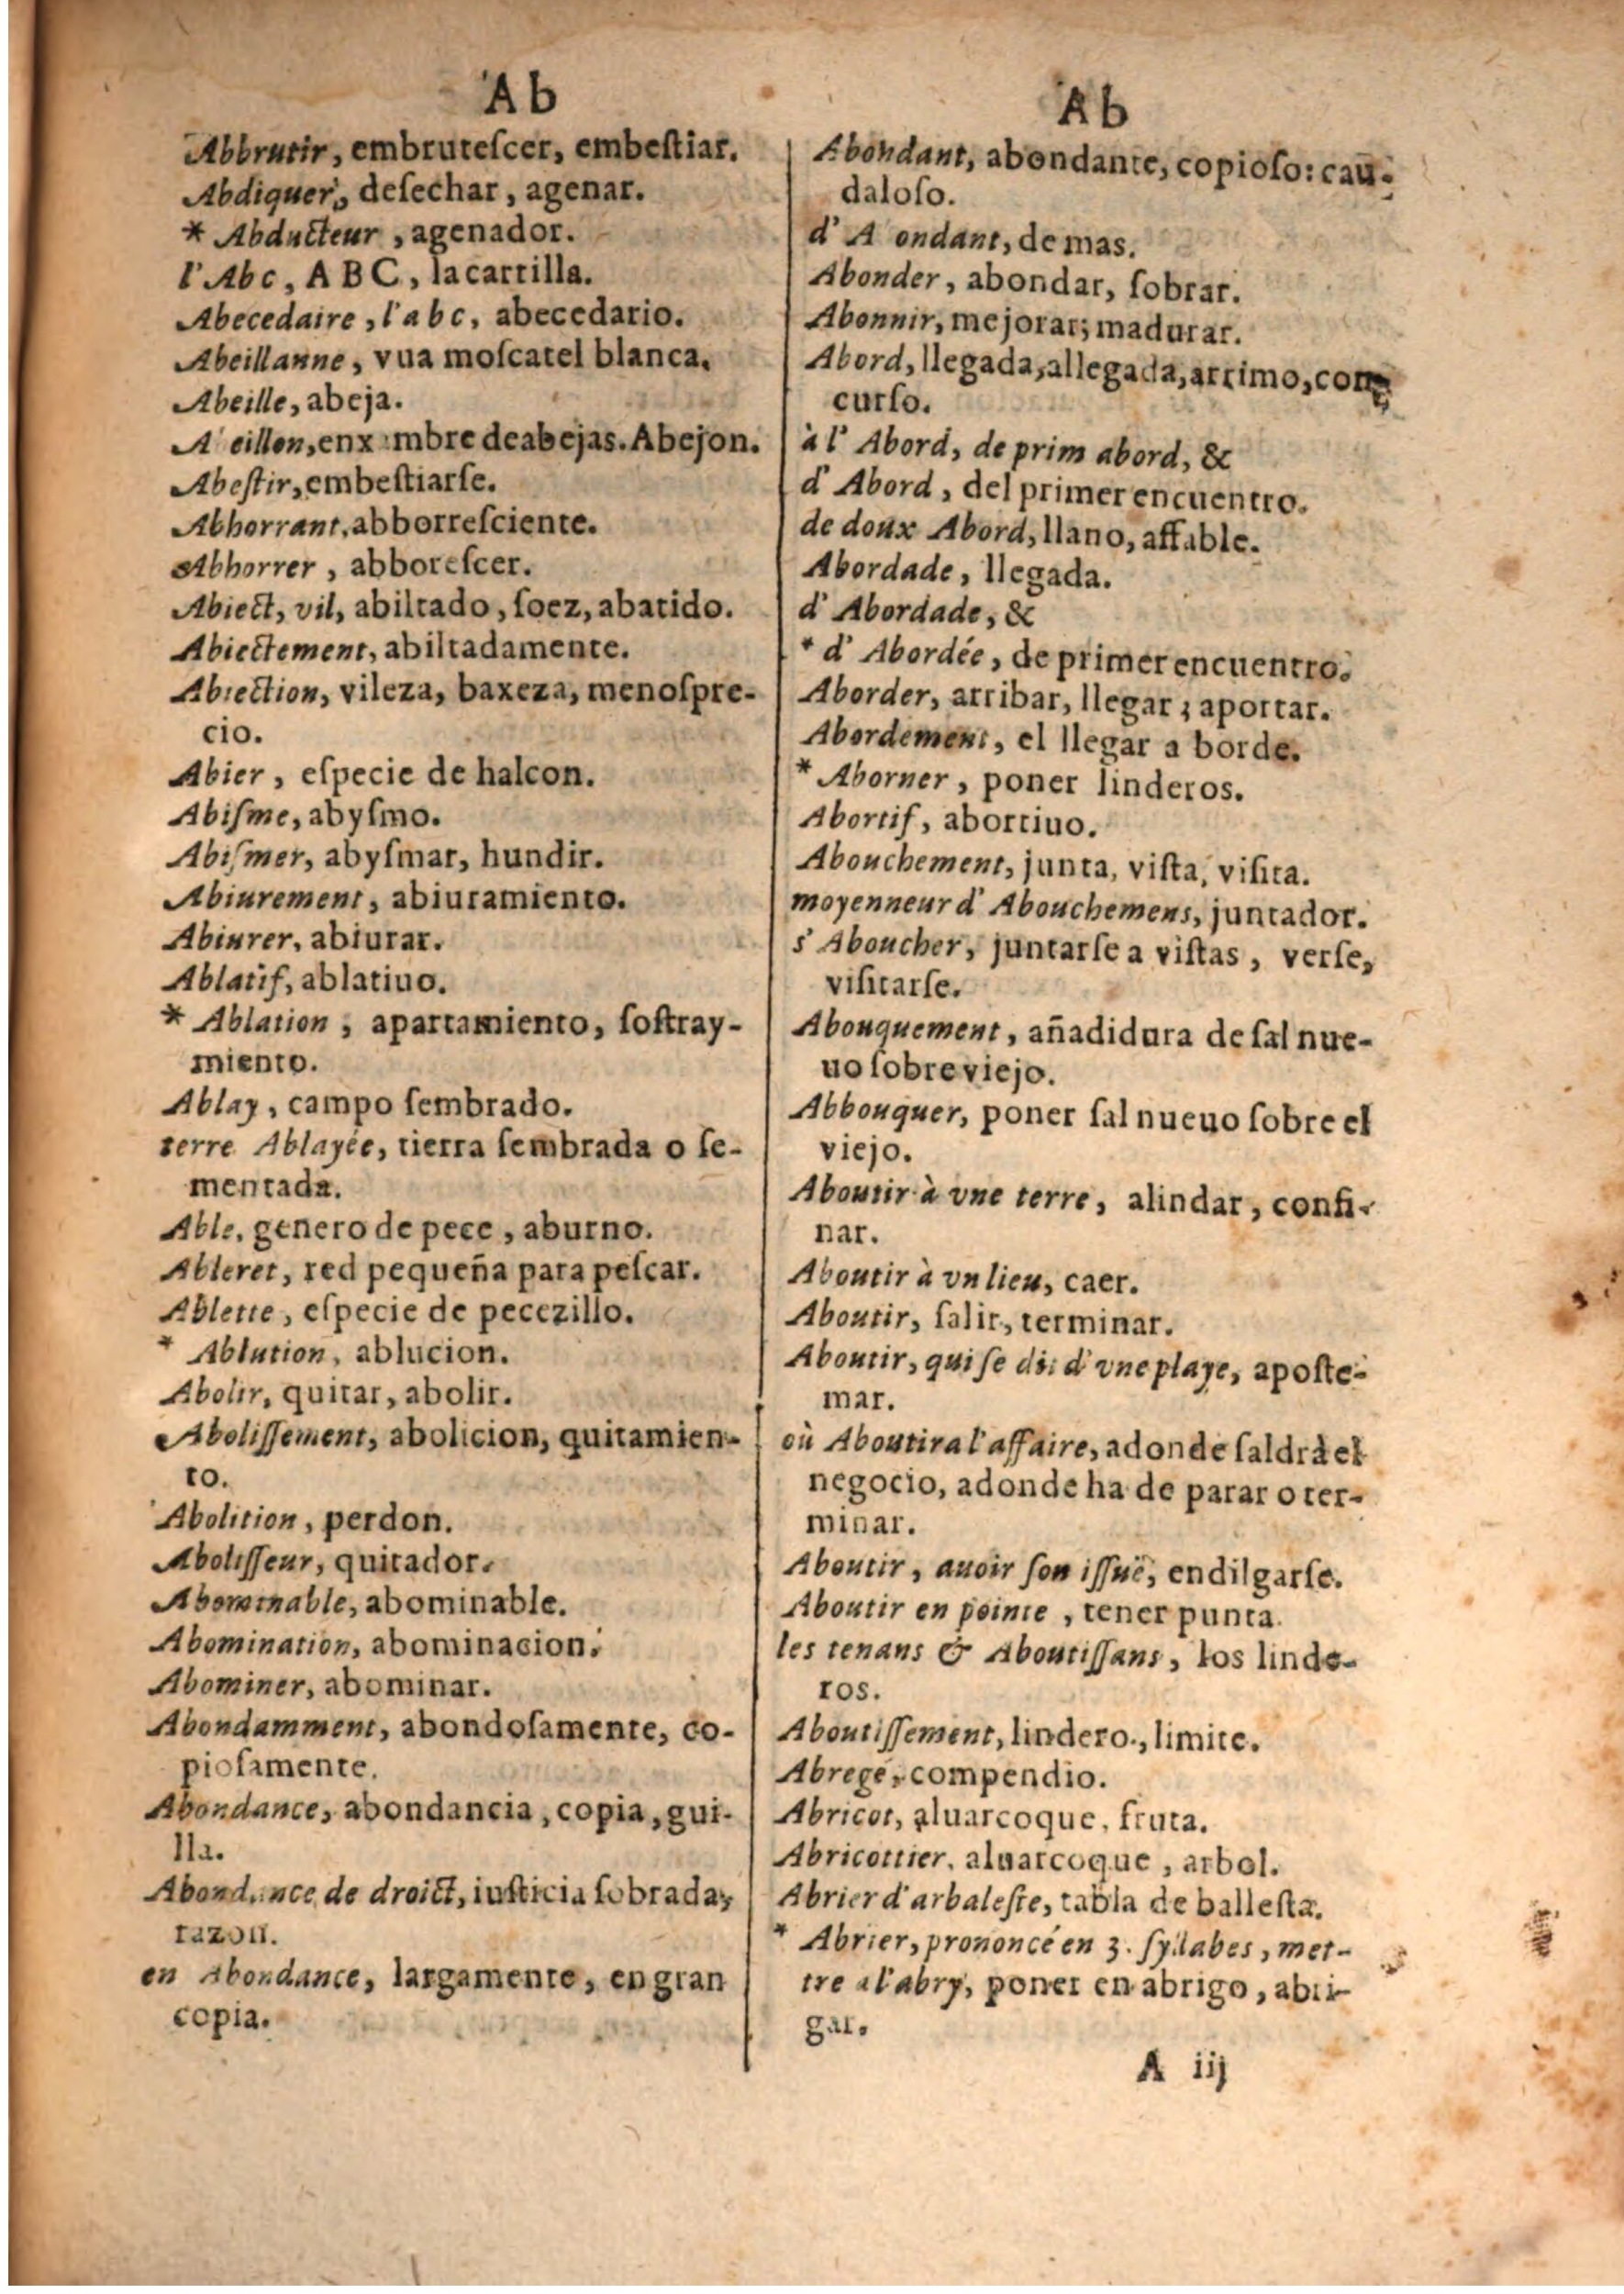 Ab
Abbrutir, embruteſcer, embeſtiar.
Abdiquer, deſechar, agenar.
* Abducteur, agenador.
l'Abc, ABC, la cartilla.
Abecedaire, l'abc, abecedario.
Abeillanne, vua moſcatel blanca.
Abeille, abeja.
A eillon, enx mbre de abejas. Abejon.
Abeſtir, embeſtiarſe.
Abhorrant, abborreſciente.
Abhorrer, abboreſcer.
Abiect, vil, abiltado, ſoez, abatido.
Abiectement, abiltadamente.
Abiection, vileza, baxeza, menoſpre-
cio.
Abier, eſpecie de halcon.
Abiſme, abyſmo.
Abiſmer, abyſmar, hundir.
Abiurement, abiuramiento.
Abiurer, abiurar.
Ablatif, ablatiuo.
* Ablation, apartamiento, ſoſtray-
miento.
Ablay, campo ſembrado.
terre Ablayée, tierra ſembrada o ſe-
mentada.
Able, genero de pece, aburno.
Ableret, red pequeña para peſcar.
Ablette, eſpecie de pecezillo.
* Ablution, ablucion.
Abolir, quitar, abolir.
Aboliſſement, abolicion, quitamien-
to.
Abolition, perdon.
Aboliſſeur, quitador.
Abominable, abominable.
Abomination, abominacion.
Abominer, abominar.
Abondamment, abondoſamente, co-
pioſamente.
Abondance, abondancia, copia, gui-
lla.
Abondance de droict, iuſticia ſobrada,
razon.
en Abondance, largamente, en gran
copia.
Ab
Abondant, abondante, copioſo: cau-
daloſo.
d'A ondant, de mas.
Abonder, abondar, ſobrar.
Abonnir, mejorar; madurar.
Abord, llegada, allegada, arrimo, con-
curſo.
à l'Abord, de prim abord, &
d'Abord, del primer encuentro.
de doux Abord, llano, affable.
Abordade, llegada.
d'Abordade, &
* d'Abordée, de primer encuentro.
Aborder, arribar, llegar; aportar.
Abordement, el llegar a borde.
* Aborner, poner linderos.
Abortif, abortiuo.
Abouchement, junta, viſta, viſita.
moyenneur d'Abouchemens, juntador.
s'Aboucher, juntarſe a viſtas, verſe,
viſitarſe.
Abouquement, añadidura de ſal nue-
uo ſobre viejo.
Abbouquer, poner ſal nueuo ſobre el
viejo.
Aboutir à vne terre, alindar, confi-
nar.
Aboutir à vn lieu, caer.
Aboutir, ſalir, terminar.
Aboutir, qui ſe dit d'vne playe, apoſte-
mar.
où Aboutira l'affaire, adonde ſaldrà el
negocio, adonde ha de parar o ter-
minar.
Aboutir, auoir ſon iſſuë, endilgarſe.
Aboutir en pointe, tener punta.
les tenans & Aboutiſſans, los linde-
ros.
Aboutiſſement, lindero, limite.
Abregé, compendio.
Abricot, aluarcoque, fruta.
Abricottier, aluarcoque, arbol.
Abrier d'arbaleſte, tabla de balleſta.
* Abrier, prononcé en 3. ſyllabes, met-
tre a l'abry, poner en abrigo, abri-
gar.
A iij